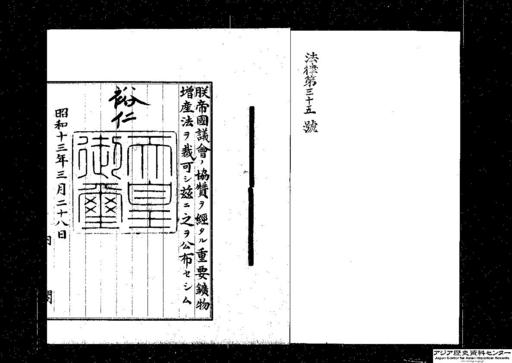 法律第三十五號
朕帝國議會ノ協贊ヲ經タル重要鑛物
增産法ヲ裁可シ茲ニ之ヲ公布セシム
裕仁
天皇
御璽
昭和十三年三月二十八日
内閣
アジア歴史資料センター
Japan Center for Asian Historical Records